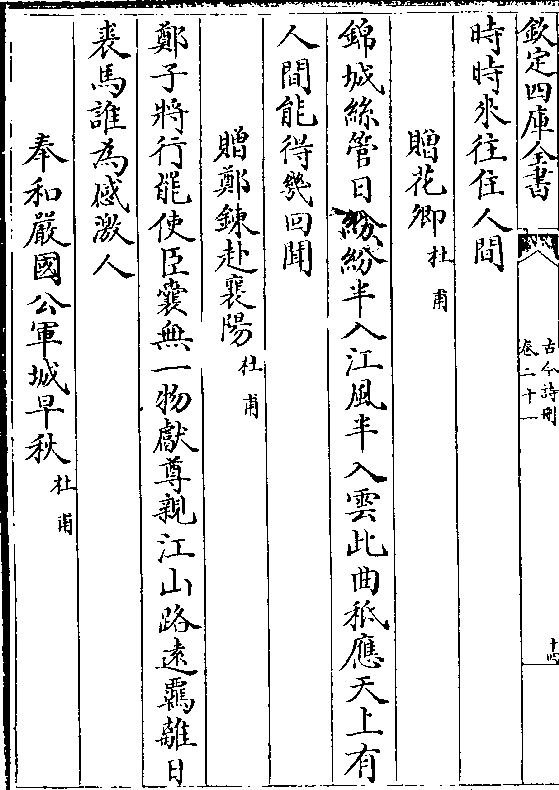 欽定四庫全書
古今詩刪
卷二十一
十四
時時來往住人間
贈花卿杜甫
錦城絲管日紛紛半入江風半入雲此曲秪應天上有
人間能得幾回聞
贈鄭鍊赴襄陽杜甫
鄭子將行罷使臣囊無一物獻尊親江山路遠羈離日
裘馬誰為感激人
奉和嚴國公軍城早秋杜甫